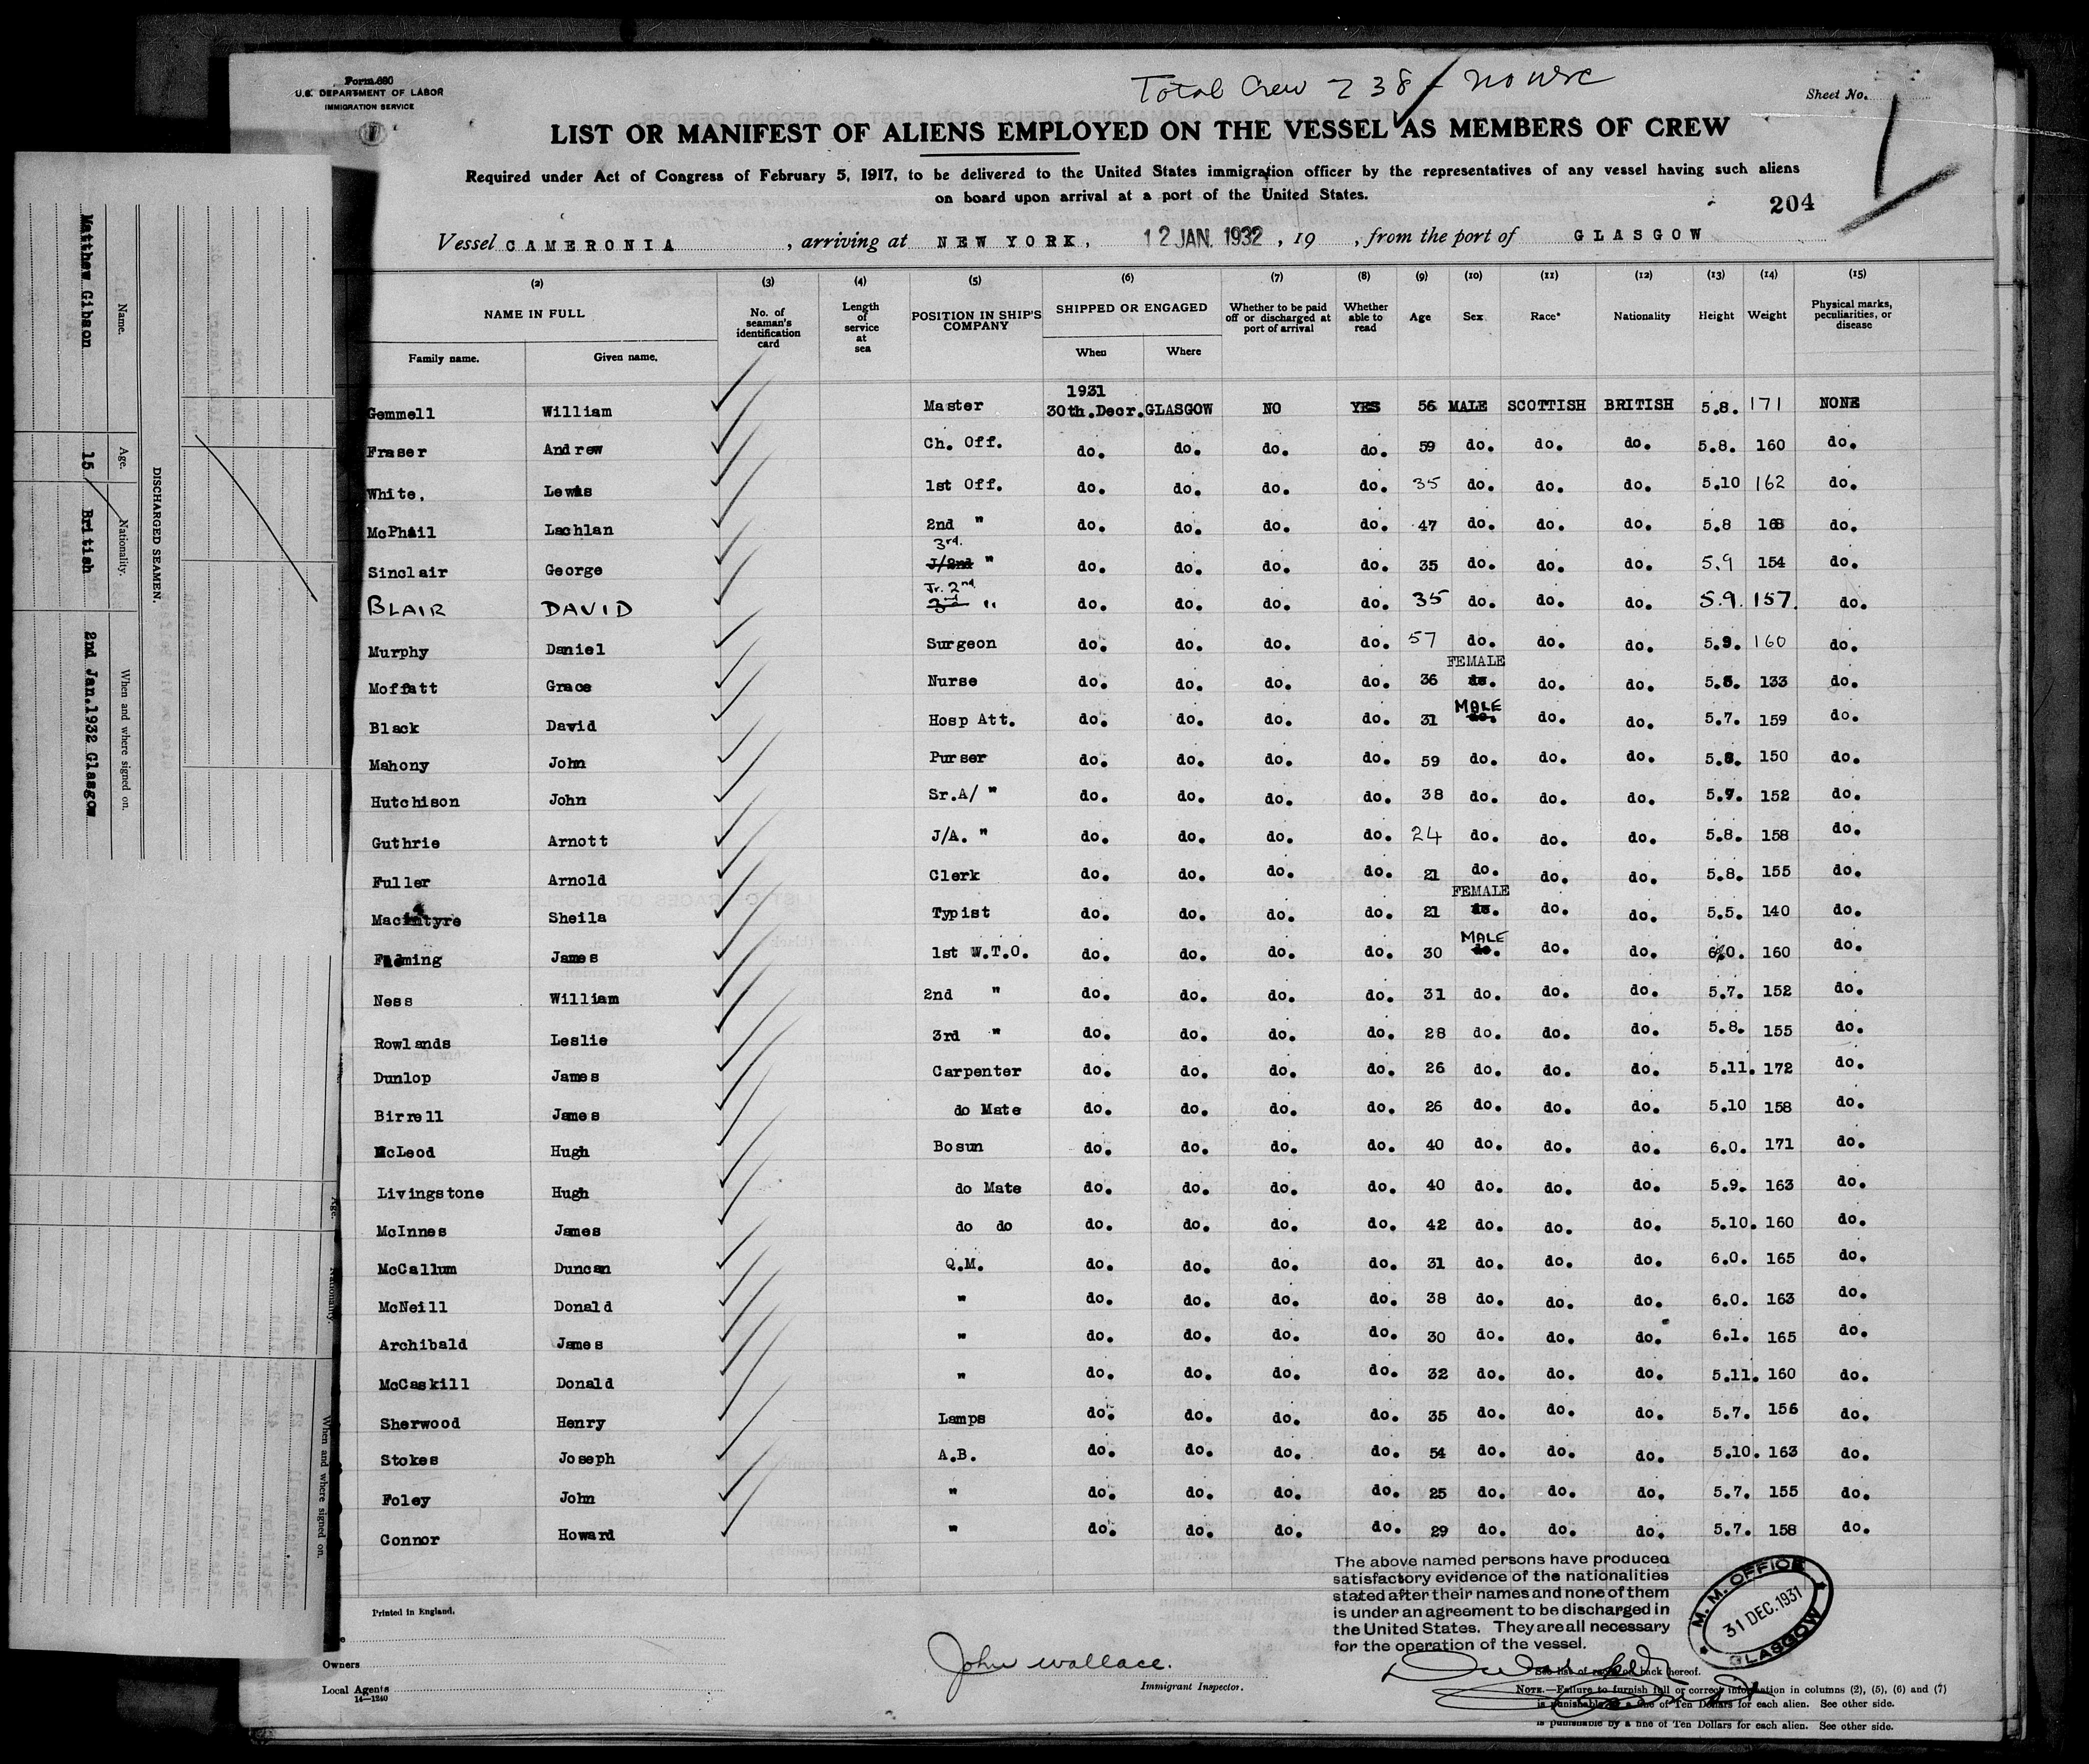 Form 680
U.S. DEPARTMENT OF LABOR
IMMIGRATION SERVICE
Total Crew 238 -
Sheet No.
LIST OR MANIFEST OF ALIENS EMPLOYED ON THE VESSEL AS MEMBERS OF CREW
Required under Act of Congress of February 5, 1917, to be delivered to the United States immigration officer by the representatives of any vessel having such aliens
on board upon arrival at a port of the United States.
204
Vessel CAMERONIA, arriving at NEW YORK, 12 JAN. 1932, 19 , from the port of GLASGOW
(2) (3) (4) (5) (6) (7) (8) (9) (10) (11) (12) (13) (14) (15)
NAME IN FULL
Family name. Given name.
No. of seaman's identification card
Length of service at sea
POSITION IN SHIP'S COMPANY
SHIPPED OR ENGAGED
When Where
Whether to be paid off or discharged at port of arrival
Whether able to read
Age Sex Race* Nationality Height Weight
Physical marks, peculiarities, or disease
1931
Gemmell William Master 30th.Decr. GLASGOW NO YES 56 MALE SCOTTISH BRITISH 5.8. 171 NONE
Fraser Andrew Ch. Off. do. do. do. do. 59 do. do. do. 5.8. 160 do.
White. Lewis 1st Off. do. do. do. do. 35 do. do. do. 5.10 162 do.
McPhail Lachlan 2nd " do. do. do. do. 47 do. do. do. 5.8 168 do.
Sinclair George 3rd. J/2nd " do. do. do. do. 35 do. do. do. 5.9 154 do.
BLAIR DAVID Jr. 2nd 3rd " do. do. do. do. 35 do. do. do. 5.9. 157. do.
Murphy Daniel Surgeon do. do. do. do. 57 do. do. do. 5.9. 160 do.
Moffatt Grace Nurse do. do. do. do. 36 FEMALE do. do. do. 133 do.
Black David Hosp Att. do. do. do. do. 31 MALE do. do. do. 5.7. 159 do.
Mahony John Purser do. do. do. do. 59 do. do. do. 5.8. 150 do.
Hutchison John Sr.A/ " do. do. do. do. 38 do. do. do. 5.7. 152 do.
Guthrie Arnott J/A. " do. do. do. do. 24 do. do. do. 5.8. 158 do.
Fuller Arnold Clerk do. do. do. do. 21 do. do. do. 5.8. 155 do.
Macintyre Sheila Typist do. do. do. do. 21 FEMALE do. do. do. 5.5. 140 do.
James 1st W.T.O. do. do. do. do. 30 MALE do. do. do. 6.0. 160 do.
Ness William 2nd " do. do. do. do. 31 do. do. do. 5.7. 152 do.
Rowlands Leslie 3rd " do. do. do. do. 28 do. do. do. 5.8. 155 do.
Dunlop James Carpenter do. do. do. do. 26 do. do. do. 5.11. 172 do.
Birrell James do Mate do. do. do. do. 26 do. do. do. 5.10 158 do.
McLeod Hugh Bosun do. do. do. do. 40 do. do. do. 6.0. 171 do.
Livingstone Hugh do Mate do. do. do. do. 40 do. do. do. 5.9. 163 do.
McInnes James do do do. do. do. do. 42 do. do. do. 5.10. 160 do.
McCallum Duncan Q.M. do. do. do. do. 31 do. do. do. 6.0. 165 do.
McNeill Donald " do. do. do. do. 38 do. do. do. 6.0. 163 do.
Archibald James " do. do. do. do. 30 do. do. do. 6.1. 165 do.
McCaskill Donald " do. do. do. do. 32 do. do. do. 5.11. 160 do.
Sherwood Henry Lamps do. do. do. do. 35 do. do. do. 5.7. 156 do.
Stokes Joseph A.B. do. do. do. do. 54 do. do. do. 5.10. 163 do.
Foley John " do. do. do. do. 25 do. do. do. 5.7. 155 do.
Connor Howard " do. do. do. do. 29 do. do. do. 5.7. 158 do.
The above named persons have produced
satisfactory evidence of the nationalities
stated after their names and none of them
is under an agreement to be discharged in
the United States. They are all necessary
for the operation of the vessel.
M. M. OFFICE
31 DEC. 1931
GLASGOW
Printed in England.
Owners
Local Agents
14—1240
John Wallace.
Immigrant Inspector.
See list of races on back hereof.
NOTE.—Failure to furnish full or correct information in columns (2), (5), (6) and (7)
is punishable by a fine of Ten Dollars for each alien. See other side.
is punishable by a fine of Ten Dollars for each alien. See other side.
DISCHARGED SEAMEN.
Name. Age. Nationality. When and where signed on.
Matthew Gibson 15 British 2nd Jan.1932 Glasgow
Age. Nationality. When and where signed on.